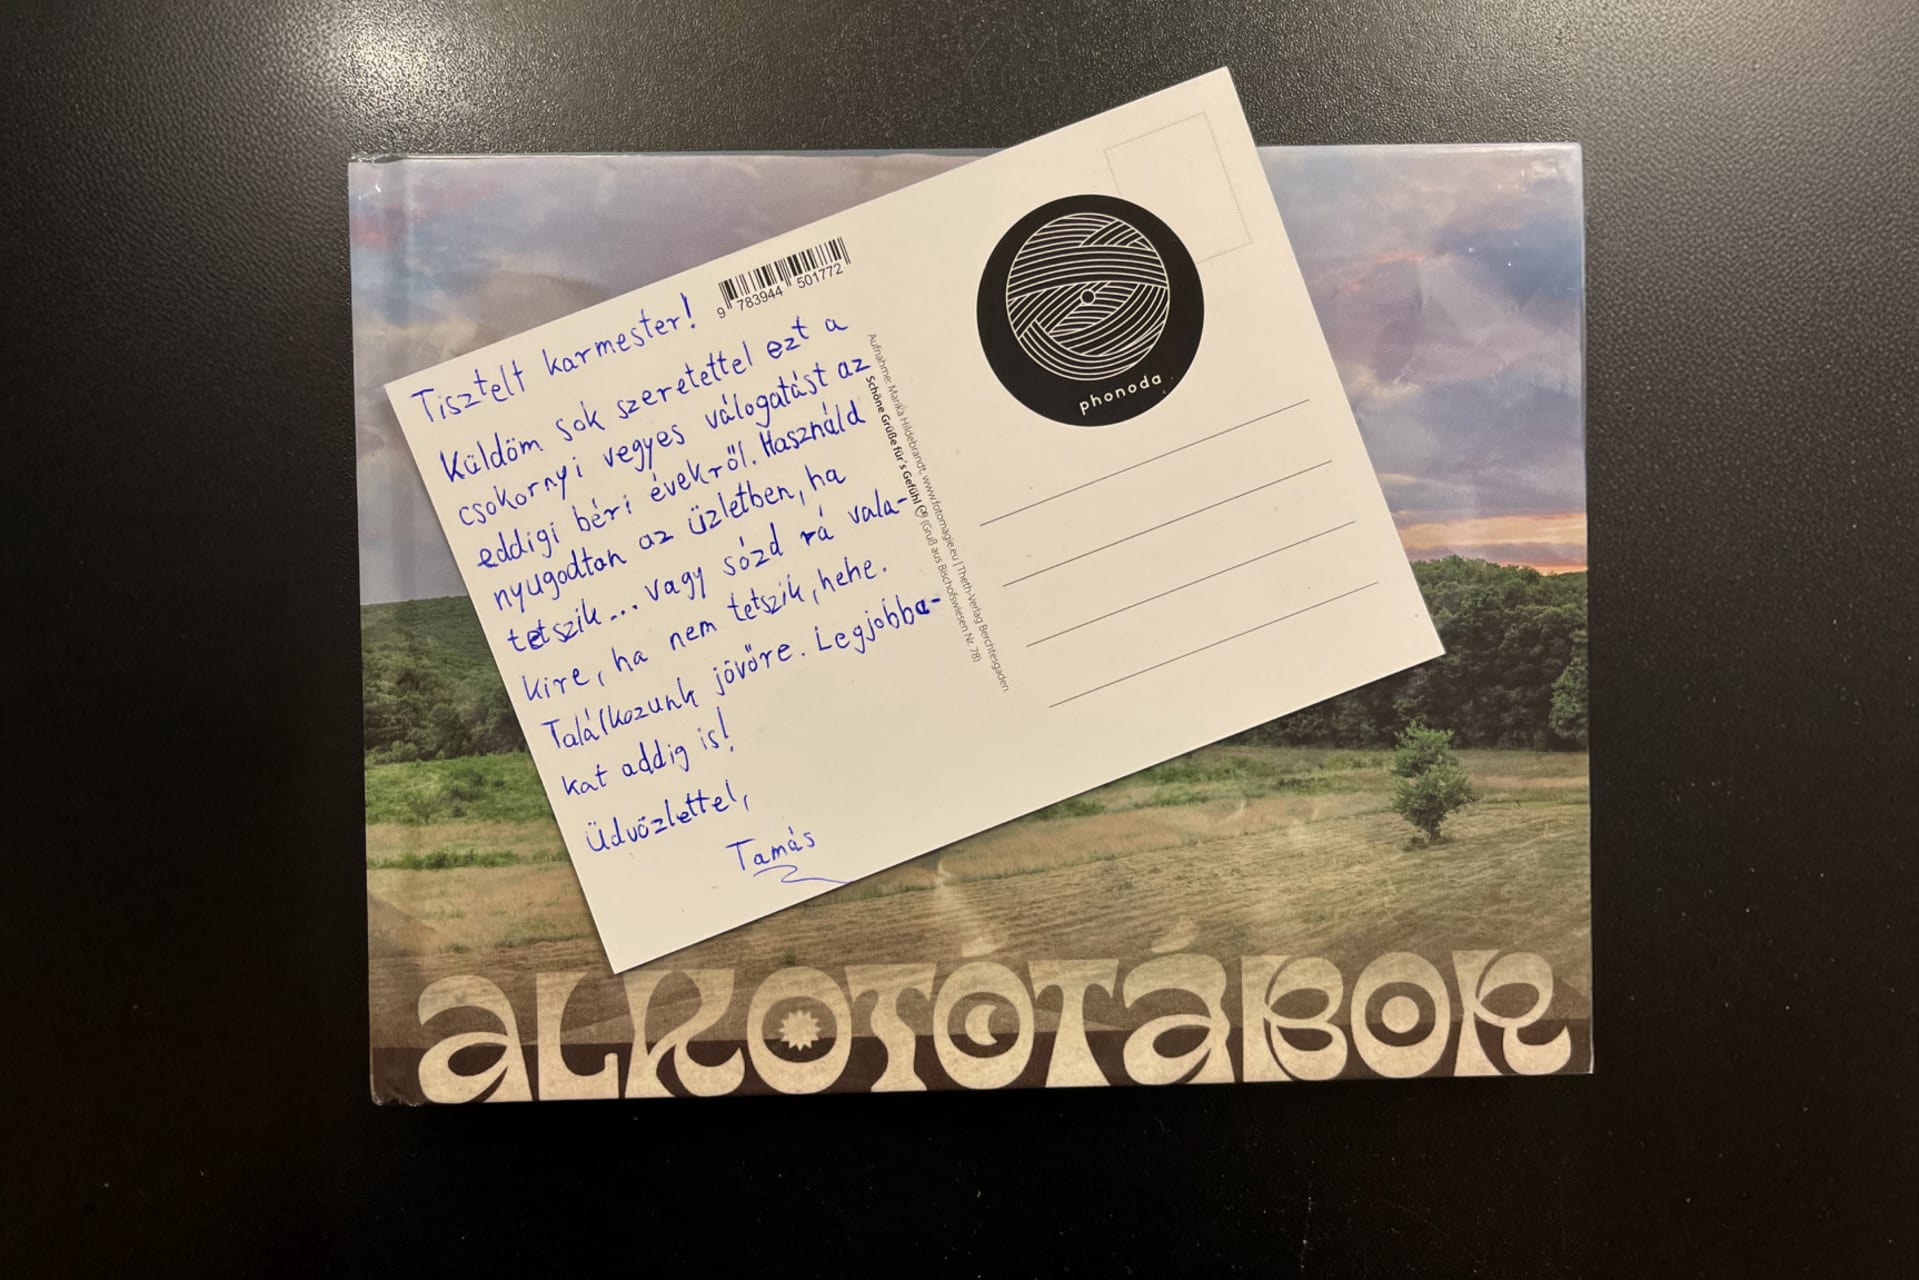 Tisztelt karmester!
Küldöm sok szeretettel ezt a
csokornyi vegyes válogatást az
eddigi béri évekről. Használd
nyugodtan az üzletben, ha
tetszik... vagy sózd rá vala-
kire, ha nem tetszik, hehe.
Találkozunk jövőre. Legjobba-
kat addig is!
Üdvözlettel,
Tamás
9 783944 501772
Aufnahme: Marika Hildebrandt, www.fotomagie.eu | Theth-Verlag Berchtesgaden
Schöne Grüße für's Gefühl (Gruß aus Bischofswiesen Nr. 78)
phonoda
ALKOTÓTÁBOR